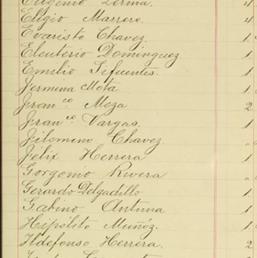 Eugenio Lerma. 4
Eligio Marrero. 4
Evaristo Chavez. 1
Eleuterio Dominguez 1
Emilio Sifuentes. 1
Jermina Mota 1
Fran co Meza 2
Fran co Vargas. 1
Filomeno Chavez. 1
Felix Herrera 1
Gorgonio Rivera
Gerardo Delgadillo 1
Gabino Antuna 1
Hipólito Muñoz. 1
Ildefonso Herrera. 2